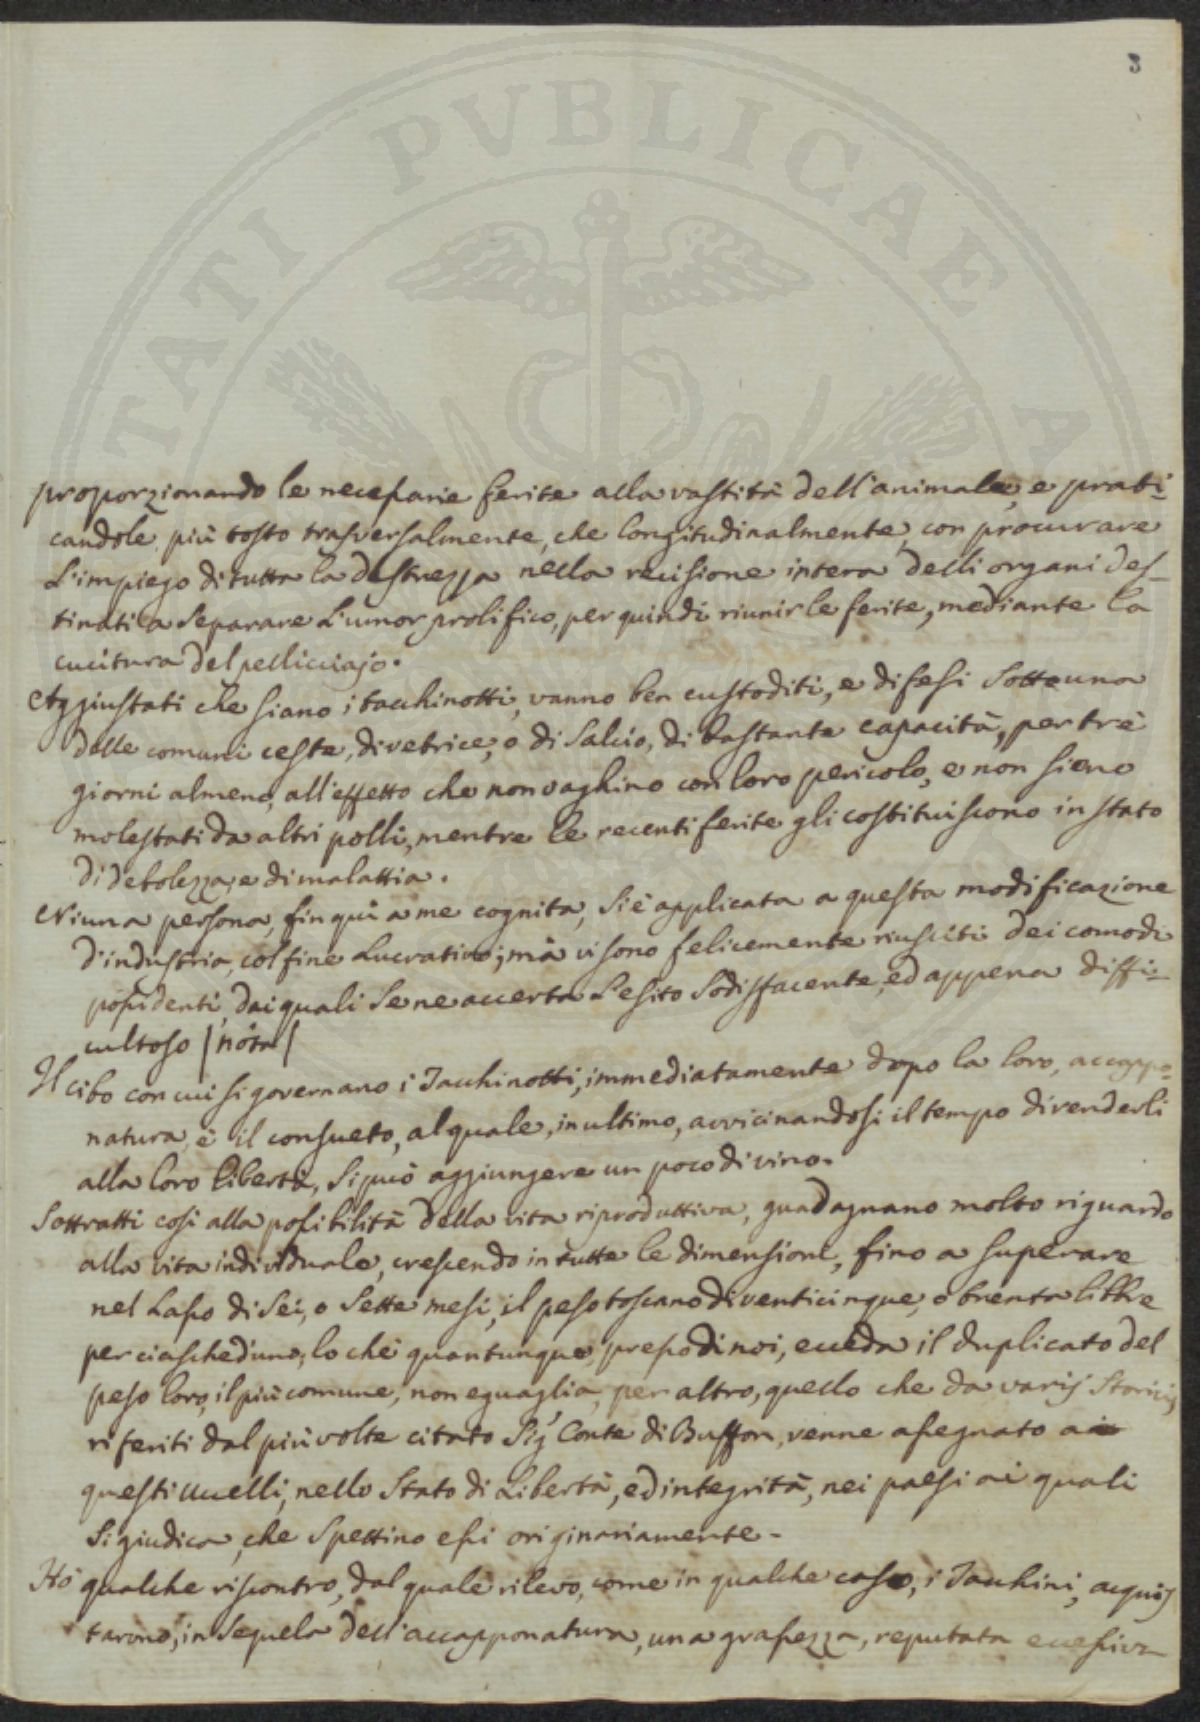 3
TATI PVBLICAE A
proporzionando le necessarie ferite alla vastità dell'animale, e prati-
candole più tosto trasversalmente, che longitudinalmente, con procurare
L'impiego di tutta la destrezza nella recisione intera delli organi des-
tinati a separare L'umor prolifico, per quindi riunir le ferite, mediante la
cucitura del pellicciajo.
Aggiustati che siano i tacchinotti, vanno ben custoditi, e difesi sotto una
delle comuni ceste, di vetrice, o di Salcio, di bastante capacità, per trè
giorni almeno, all'effetto che non vaghino con loro pericolo, e non sieno
molestati da altri polli, mentre le recenti ferite gli costituiscono in stato
di debolezza, e di malattia.
Niuna persona, fin quì a me cognita, si è applicata a questa modificazione
d'industria, col fine Lucrativo; mà vi sono felicemente riusciti dei comodi
possidenti, dai quali se ne accerta L'esito sodisfacente, ed appena diffi-
cultoso / nota /
Il cibo con cui si governano i Tacchinotti, immediatamente dopo la loro, accappo-
natura, è il consueto, al quale, in ultimo, avvicinandosi il tempo di renderli
alla loro libertà, si può aggiungere un poco di vino.
Sottratti così alla possibilità della vita riproduttiva, guadagnano molto riguardo
alla vita individuale, crescendo in tutte le dimensioni, fino a superare
nel Lasso di sei, o sette mesi, il peso toscano di venticinque, o trenta libbre
per ciascheduno; lo che quantunque, presso di noi, ecceda il duplicato del
peso loro, il più comune, non eguaglia, per altro, quello che da varij Storici,
riferiti dal più volte citato Sig.r Conte di Buffon, venne assegnato a
questi Uccelli, nello Stato di Libertà, ed integrità, nei paesi ai quali
si giudica, che spettino essi originariamente.
Hò qualche riscontro, dal quale rilevo, come in qualche caso, i Tacchini, acquis
tarono, in sequela dell'accapponatura, una grassezza, reputata eccessiva